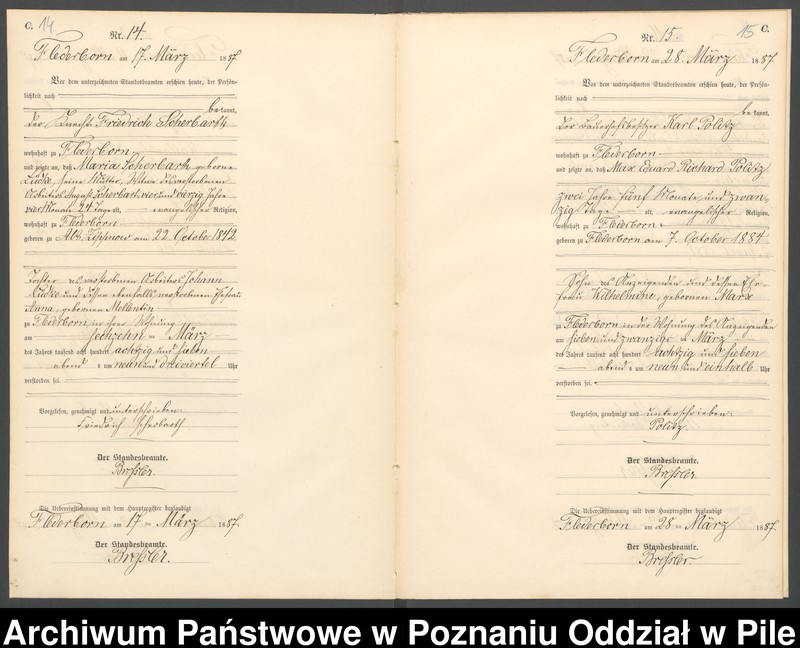 C. 14
Nr. 14.
Flederborn am 17. März 1887.
Vor dem unterzeichneten Standesbeamten erschien heute, der Persön-
lichkeit nach
bekannt,
der Knecht Friedrich Scherbarth
wohnhaft zu Flederborn
und zeigte an, daß Maria Scherbarth geborene
Lüdke, seine Mutter, Witwe des verstorbenen
Arbeiters August Scherbarth, vier und vierzig Jahre
vier Monate 24 Tage alt, evangelischer Religion,
wohnhaft zu Flederborn
geboren zu Alt Zippnow am 22. October 1842
Tochter des verstorbenen Arbeiters Johann
Lüdke und dessen ebenfalls verstorbenen Ehefrau
Anna, geborenen Mellentin
zu Flederborn, in ihrer Wohnung
am sechzehn ten März
des Jahres tausend acht hundert achtzig und sieben
abends um neun und dreiviertel Uhr
verstorben sei.
Vorgelesen, genehmigt und unterschrieben:
Friedrich Scherbarth
Der Standesbeamte.
Bressler.
Die Uebereinstimmung mit dem Hauptregister beglaubigt
Flederborn am 17 ten März 1887.
Der Standesbeamte.
Bressler.
15 C.
Nr. 15.
Flederborn am 28. März 1887.
Vor dem unterzeichneten Standesbeamten erschien heute, der Persön-
lichkeit nach
bekannt,
der Bauerhofbesitzer Karl Politz
wohnhaft zu Flederborn
und zeigte an, daß Max Eduard Richard Politz
zwei Jahre fünf Monate und zwan-
zig Tage alt, evangelischer Religion,
wohnhaft zu Flederborn
geboren zu Flederborn am 7. October 1884
Sohn des Anzeigenden und dessen Ehe
frau Wilhelmine, geborenen Marx
zu Flederborn in der Wohnung des Anzeigenden
am sieben und zwanzigs ten März
des Jahres tausend acht hundert achtzig und sieben
abends um neun und einhalb Uhr
verstorben sei.
Vorgelesen, genehmigt und unterschrieben:
Politz
Der Standesbeamte.
Bressler.
Die Uebereinstimmung mit dem Hauptregister beglaubigt
Flederborn am 28 ten März 1887.
Der Standesbeamte.
Bressler.
Archiwum Państwowe w Poznaniu Oddział w Pile